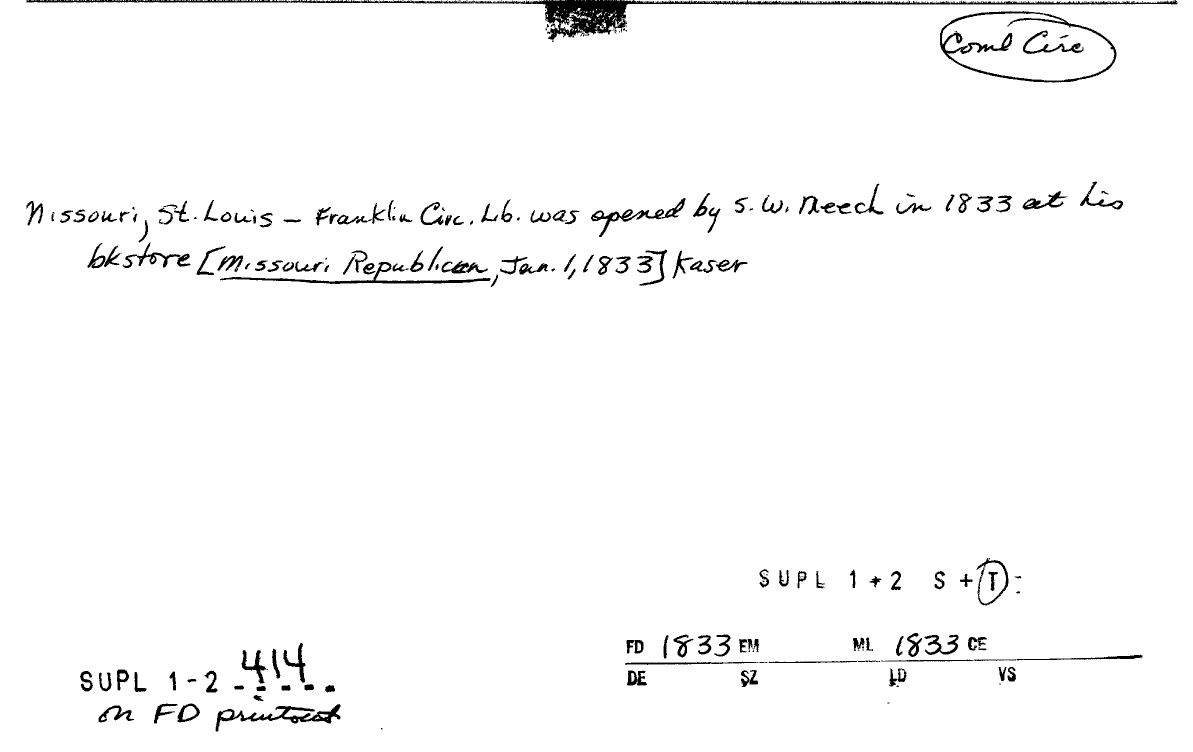 Coml Circ
Missouri, St. Louis – Franklin Circ. Lib. was opened by S. W. Meech in 1833 at his
bkstore [Missouri Republican, Jan. 1, 1833] Kaser
SUPL 1+2 S+T:
FD 1833 EM ML 1833 CE
DE SZ LD VS
SUPL 1-2 414
on FD printout